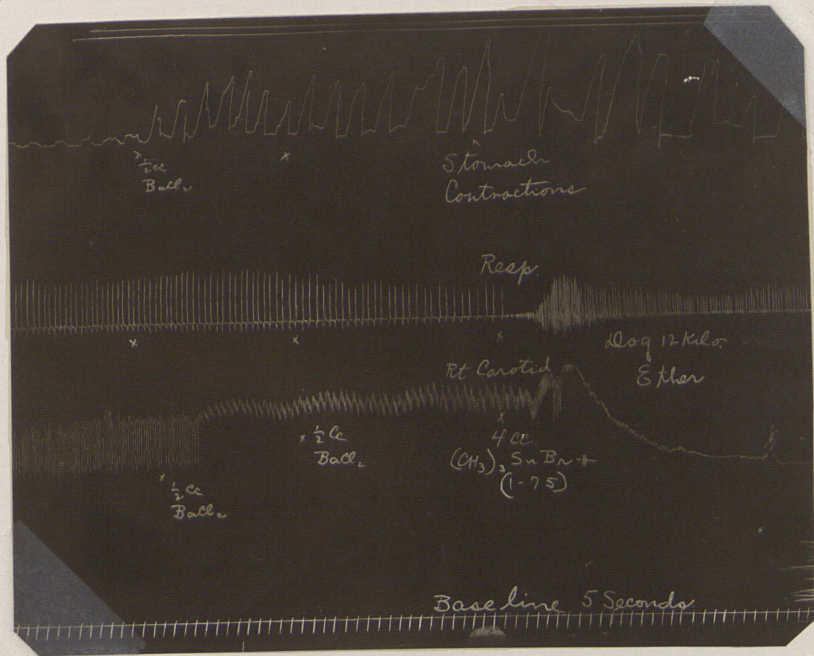 1/2 cc
BaCl₂
x
Stomach
Contractions
Resp.
x
x
x
Dog 12 Kilo.
Ether
Rt Carotid
x 1/2 Cc
BaCl₂
x
4 cc
(CH₃)₃ Sn Br
(1-75)
x
1/2 Cc
BaCl₂
Base line 5 Seconds